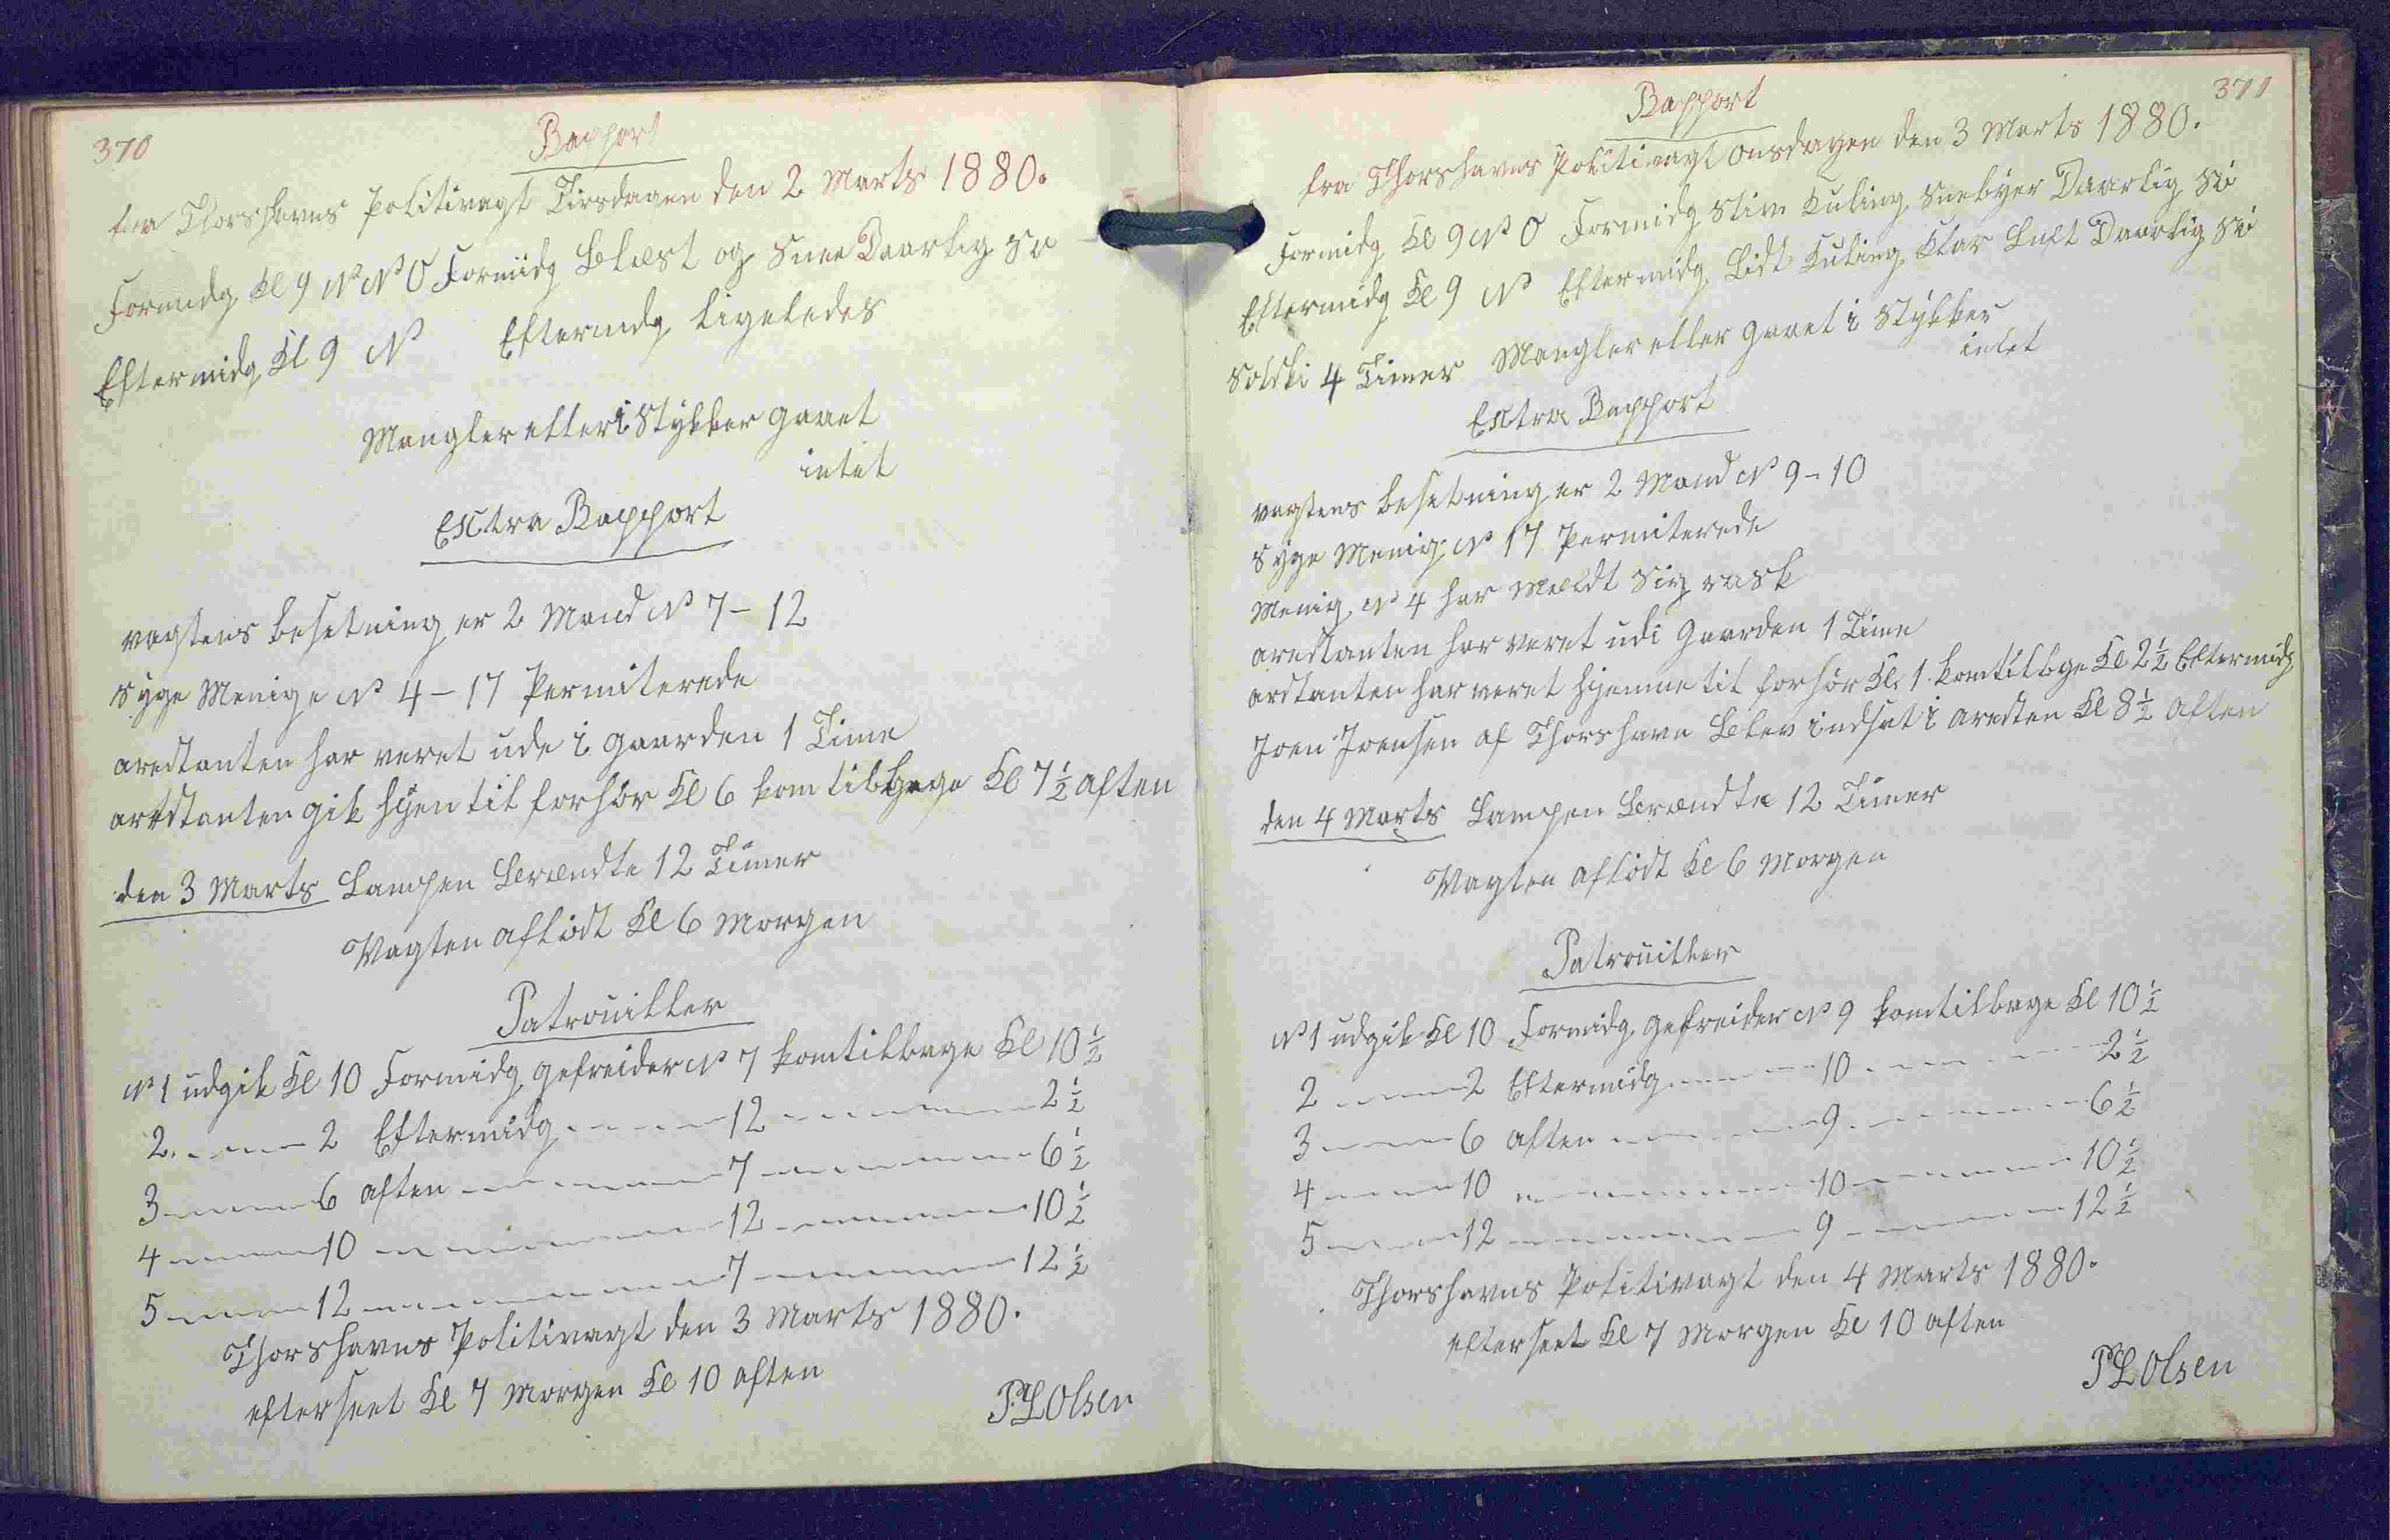 370
Rapport
fra Thorshavns Politivagt Tirsdagen den 2 Marts 1880.
Formidg Kl 9 N N O Formidg Blæst og Snee Daarlig Sö
Eftermidg Kl 9 N Eftermidg ligeledes
Mangler eller i Stykker gaaet
intet
Extra Rapport
vagtens besetning er 2 Mand No 7 - 12
Syge Menige No 4 - 17 Permiterede
arestanten har veret ude i gaarden 1 Time
arestanten gik hjen til forhör Kl 6 kom tilbage Kl 7½ aften
den 3 Marts Lampen Brændte 12 Timer
Vagten aflödt Kl 6 Morgen
Patrouiller
No 1 udgik Kl 10 Formidg gefreider No 7 kom tilbage Kl 10½
2 - - - 2 Eftermidg - - - 12 - - - 2½
3 - - - 6 aften - - - 7 - - - 6½
4 - - - 10 - - - 12 - - - 10½
5 - - - 12 - - - 7 - - - 12½
Thorshavns Politivagt den 3 Marts 1880.
efterseet Kl 7 Morgen Kl 10 aften
P.L Olsen
371
Rapport
fra Thorshavns Politivagt Onsdagen den 3 Marts 1880.
Formidg Kl 9 N O Formidg Stiv Kuling Sneebyer Daarlig Sö
Eftermidg Kl 9 N Eftermidg Lidt Kuling Klar Luft Daarlig Sö
Solski 4 Timer Mangler eller gaaet i Stykker
intet
Extra Rapport
vagtens besetning er 2 Mand No 9 - 10
Syge Menig No 17 Permiterede
Menig No 4 har Meldt Sig rask
arestanten har veret udi gaarden 1 Time
arestanten har veret hjemme til forhör Kl 1 kom tilbage Kl 2½ Eftermidg
Joen Joensen af Thorshavn Blev indsat i aresten Kl 8½ aften
den 4 Marts Lampen Brændte 12 Timer
Vagten aflödt Kl 6 Morgen
Patrouiller
No 1 udgik Kl 10 Formidg gefreider No 9 kom tilbage Kl 10½
2 - - - 2 Eftermidg - - - 10 - - - 2½
3 - - - 6 aften - - - 9 - - - 6½
4 - - - 10 - - - 10 - - - 10½
5 - - - 12 - - - 9 - - - 12½
Thorshavns Politivagt den 4 Marts 1880.
efterseet Kl 7 Morgen Kl 10 aften
P L Olsen